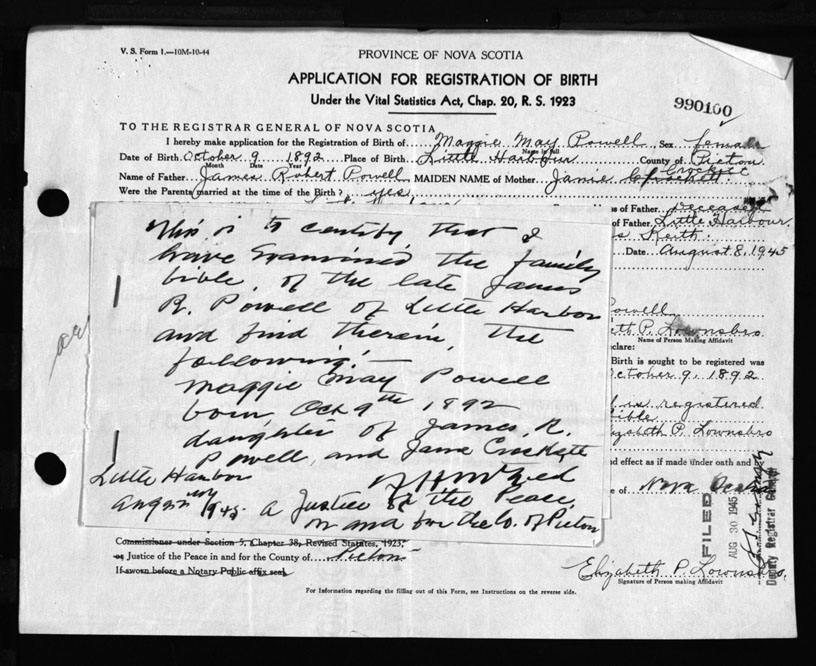 V. S. Form 1.—10M-10-44
PROVINCE OF NOVA SCOTIA
APPLICATION FOR REGISTRATION OF BIRTH
Under the Vital Statistics Act, Chap. 20, R. S. 1923
990100
TO THE REGISTRAR GENERAL OF NOVA SCOTIA
I hereby make application for the Registration of Birth of Maggie May Powell Sex female
Name in full
Date of Birth October 9 1892 Place of Birth Little Harbour County of Pictou
Month Date Year
Crockett
Name of Father James Robert Powell, MAIDEN NAME of Mother Janie
Were the Parents married at the time of Birth? yes
of Father Deceased
of Father Little Harbour
Keith
Date August 8, 1945
This is to certify that I
have examined the family
bible, of the late James
R. Powell of Little Harbor
and find therein, the
following:—
Maggie May Powell
born Oct 9th 1892
daughter of James R.
Powell, and Jane
Little Harbor
1945. a Justice of the Peace,
in and for the Co. of Pictou
Powell
P. Lownsbro
Name of Person Making Affidavit
clare:
Birth is sought to be registered was
October 9, 1892
is registered
Bible
Elizabeth P. Lownsbro
nd effect as if made under oath and
e of Nova
FILED
AUG 30 1945
Deputy Registrar General
Commissioner under Section 3, Chapter 38, Revised Statutes, 1923,
or Justice of the Peace in and for the County of Pictou
If sworn before a Notary Public affix seal
Elizabeth P. Lownsbro.
Signature of Person making Affidavit
For Information regarding the filling out of this Form, see Instructions on the reverse side.